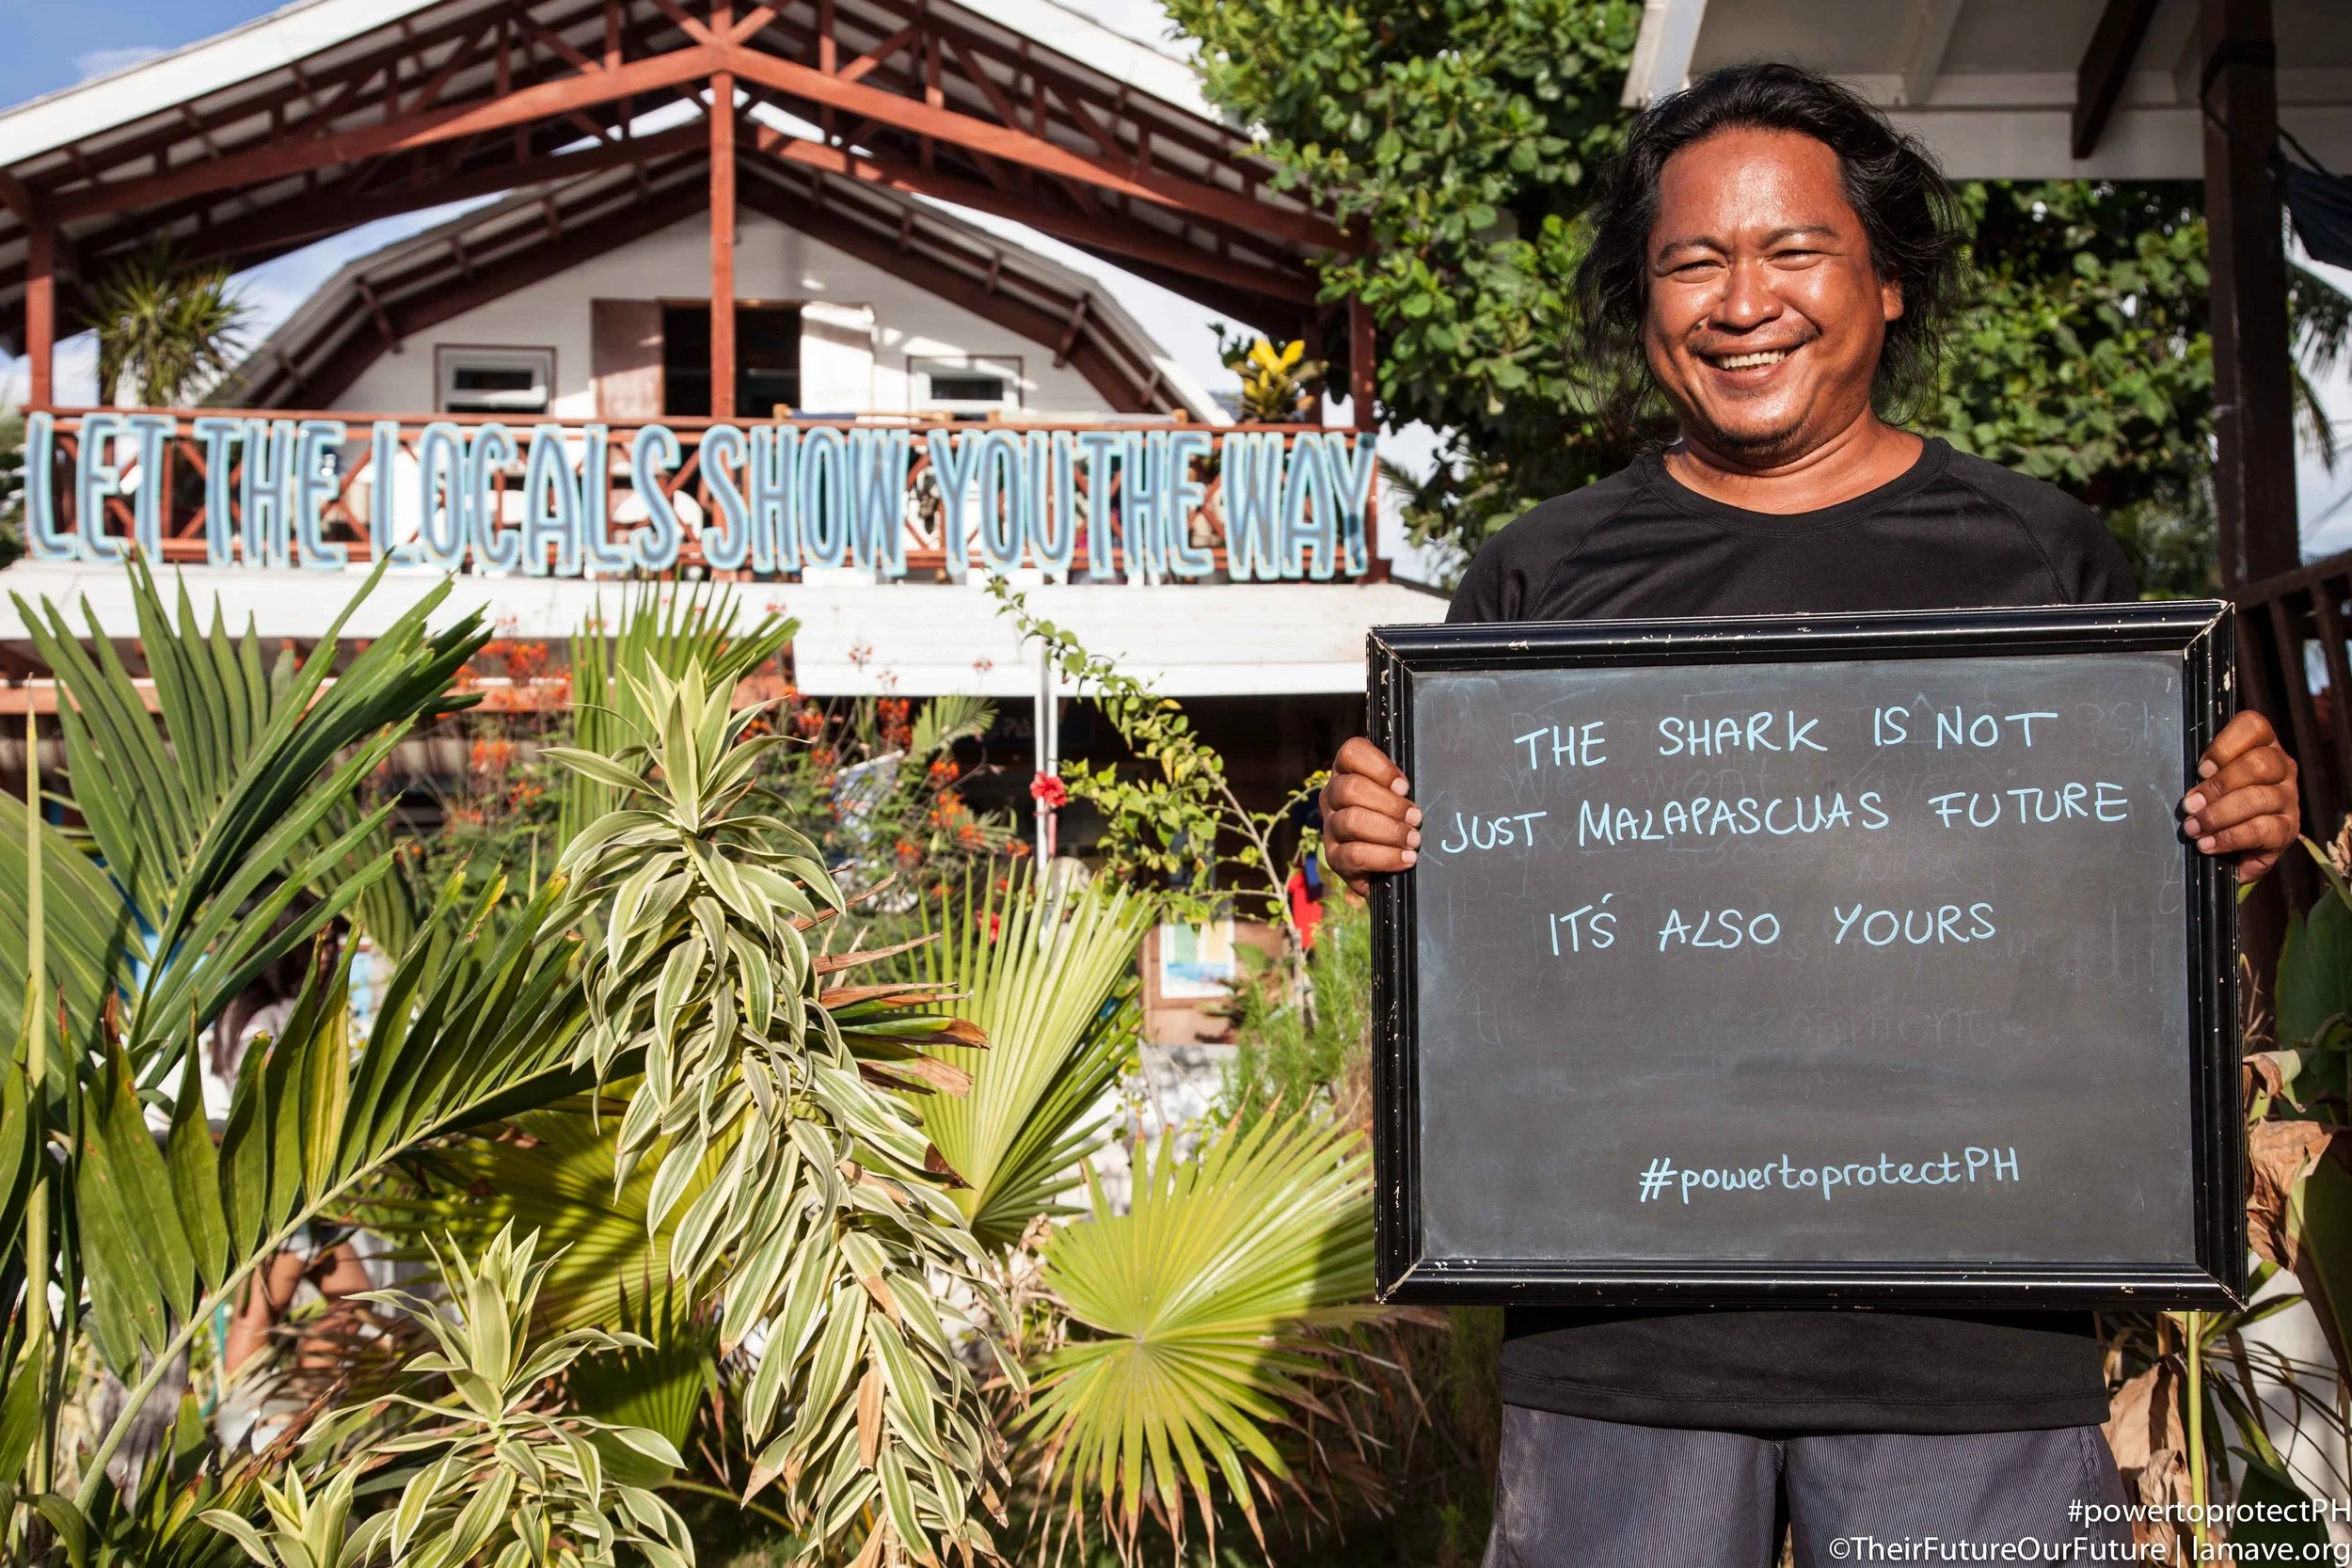 LET THE LOCALS SHOW YOU THE WAY
THE SHARK IS NOT
JUST MALAPASCUAS FUTURE
IT'S ALSO YOURS
#powertoprotectPH
#powertoprotectPH
©TheirFutureOurFuture | lamave.org